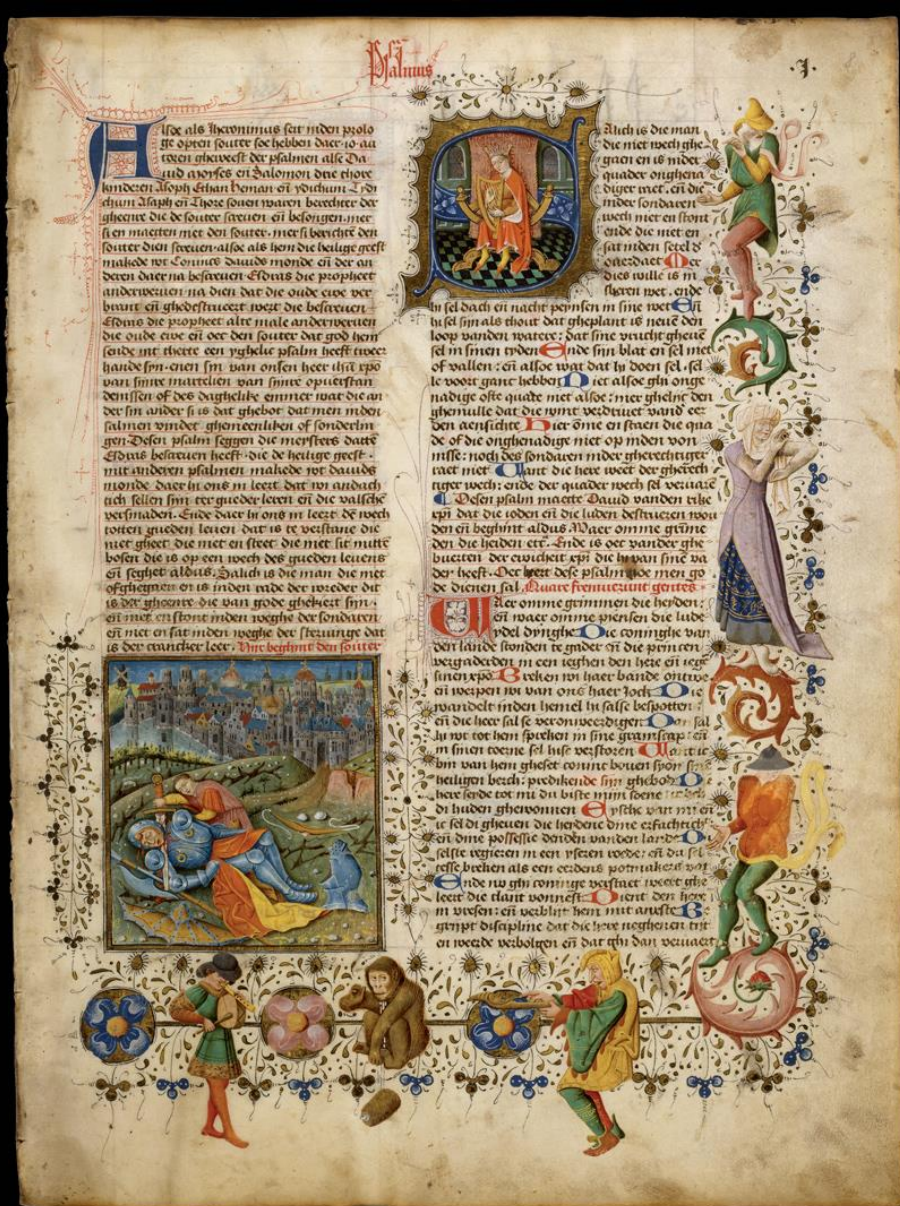 Psalmus
.I.
Alsoe als Iheronimus seit inden prolo
ge opten souter soe hebben daer .io. au
toren gheweest der psalmen alse Da
uid moyses en̄ Salomon drie thore
kinderen Asoph Ethan heman en̄ ydichum
chum Asaph en̄ Thore souen waren
gheenre die de souter screuen en̄ besongen. mer
si en maecten niet den souter. mer si
souter dien screuen alsoe als hem die heilige geest
makede wt Coninc dauids monde en̄ der an
deren daer na bescreuen Esdras die propheet
anderweruen na dien dat die oude ewe ver
brant en̄ ghedestruert wert die bescreuen
Esdras die propheet alte male anderweruen
die oude ewe en̄ oec den souter dat god hem
sende int herte een yghelic psalm heeft tweer
hande syn. enen sin van onsen heer ihū xp̄o
van sinre martelien van sinre opuerstan
denissen of des daghelike emmer wat die an
der sin ander si is dat ghebot dat men inden
salmen vindet ghemeenliken of sonderlin
gen. Desen psalm seggen die meysters dattē
Esdras bescreuen heeft. die de heilige geest.
mit anderen psalmen makede wt dauids
monde daer hi ons in leert dat wi andach
tich sellen sijn ter gueder leren en̄ die valsche
versmaden. Ende daer hi ons in leert de wech
totten gueden leuen dat is te verstane die
niet gheet die niet en steet die niet sit mitte
bosen die is op een wech des gueden leuens
en̄ seghet aldus. Salich is die man die niet
of ghegaen en is inden rade der wreder dit
is der gheenre die van gode ghekiert sijn.
en niet en stont inden weghe der sondaren
en̄ niet en sat inden weghe der steruinge dat
is der crancker leer. Hier beghint den souter
Salich is die man
die niet wech ghe
gaen en is inder
quader onghena
diger raet. en̄ die
inder sondaren
wech niet en stont
ende die niet en
sat inden setel d
quaetheit Mer
dies wille is in
sheren wet. ende
hi sel dach en̄ nacht peynsen in sine wet En̄
hi sel sijn als thout dat gheplant is neuē den
loop vanden watere: dat sine vrucht gheuē
sel in sinen tyden Ende sijn blat en sel niet
of vallen: en̄ allsoe wat dat hi doen sel. sel
le voort gant hebben Niet alsoe ghi onge
nadige ofte quade niet alsoe: mer ghelije den
ghemulle dat die wint verdriuet vand' eer
den aensichte Hier ōme en staen die qua
de of die onghenadige niet op inden von
nisse: noch des sondaren inder gherechtiger
raet niet Want die here weet der gherech
tiger wech: ende der quader wech sel
Desen psalm maecte Dauid vanden rike
xp̄i dat die ioden en̄ die luden destrueren wou
den en̄ beghint aldus Waer omme grīme
den die heiden etc. Ende is oec vander ghe
buerten der ewicheit xp̄i die hi van sinē va
der heeft. Oec leert dese psalm hoe men go
de dienen sal. Quare fremuerunt gentes
Waer omme grimmen die heyden:
en̄ waer omme piensen die lude
ydel dynghe Die coninghe van
den lande stonden te gader en̄ die princen
vergaderden in een ieghen den here en̄ iege
sinen xp̄o Breken wi haer bande ontwe
en̄ werpen wi van ons haer Ioch Die
wandelt inden hemel hi salse bespotten:
en̄ die heer sal se veronweerdigen Dan sal
hi wt tot hem spreken in sine gramscap: en̄
in sinen toerne sel hise verstoren Want ic
bin van hem gheset coninc bouen syon sine
heiligen berch: predikende sijn ghebot De
here seide tot mi du biste mijn soene ic heb
di huden ghewonnen Eysche van mi en̄
ic sel di gheuen die heydene dine erfachtich
en̄ dine possessie denden vanden lande Du
selste regieren in een yseren roede: en̄ du sel
tesse breken als een eerdens potmakers vat
Ende nu ghi coninge verstaet weert ghe
leert die tlant vonnest Dient den here
in vresen: en̄ verblijt hem mit anxste Be
gript discipline dat die here neghenen tijt
en weerde verbolgen en̄ dat ghi dan veruaert